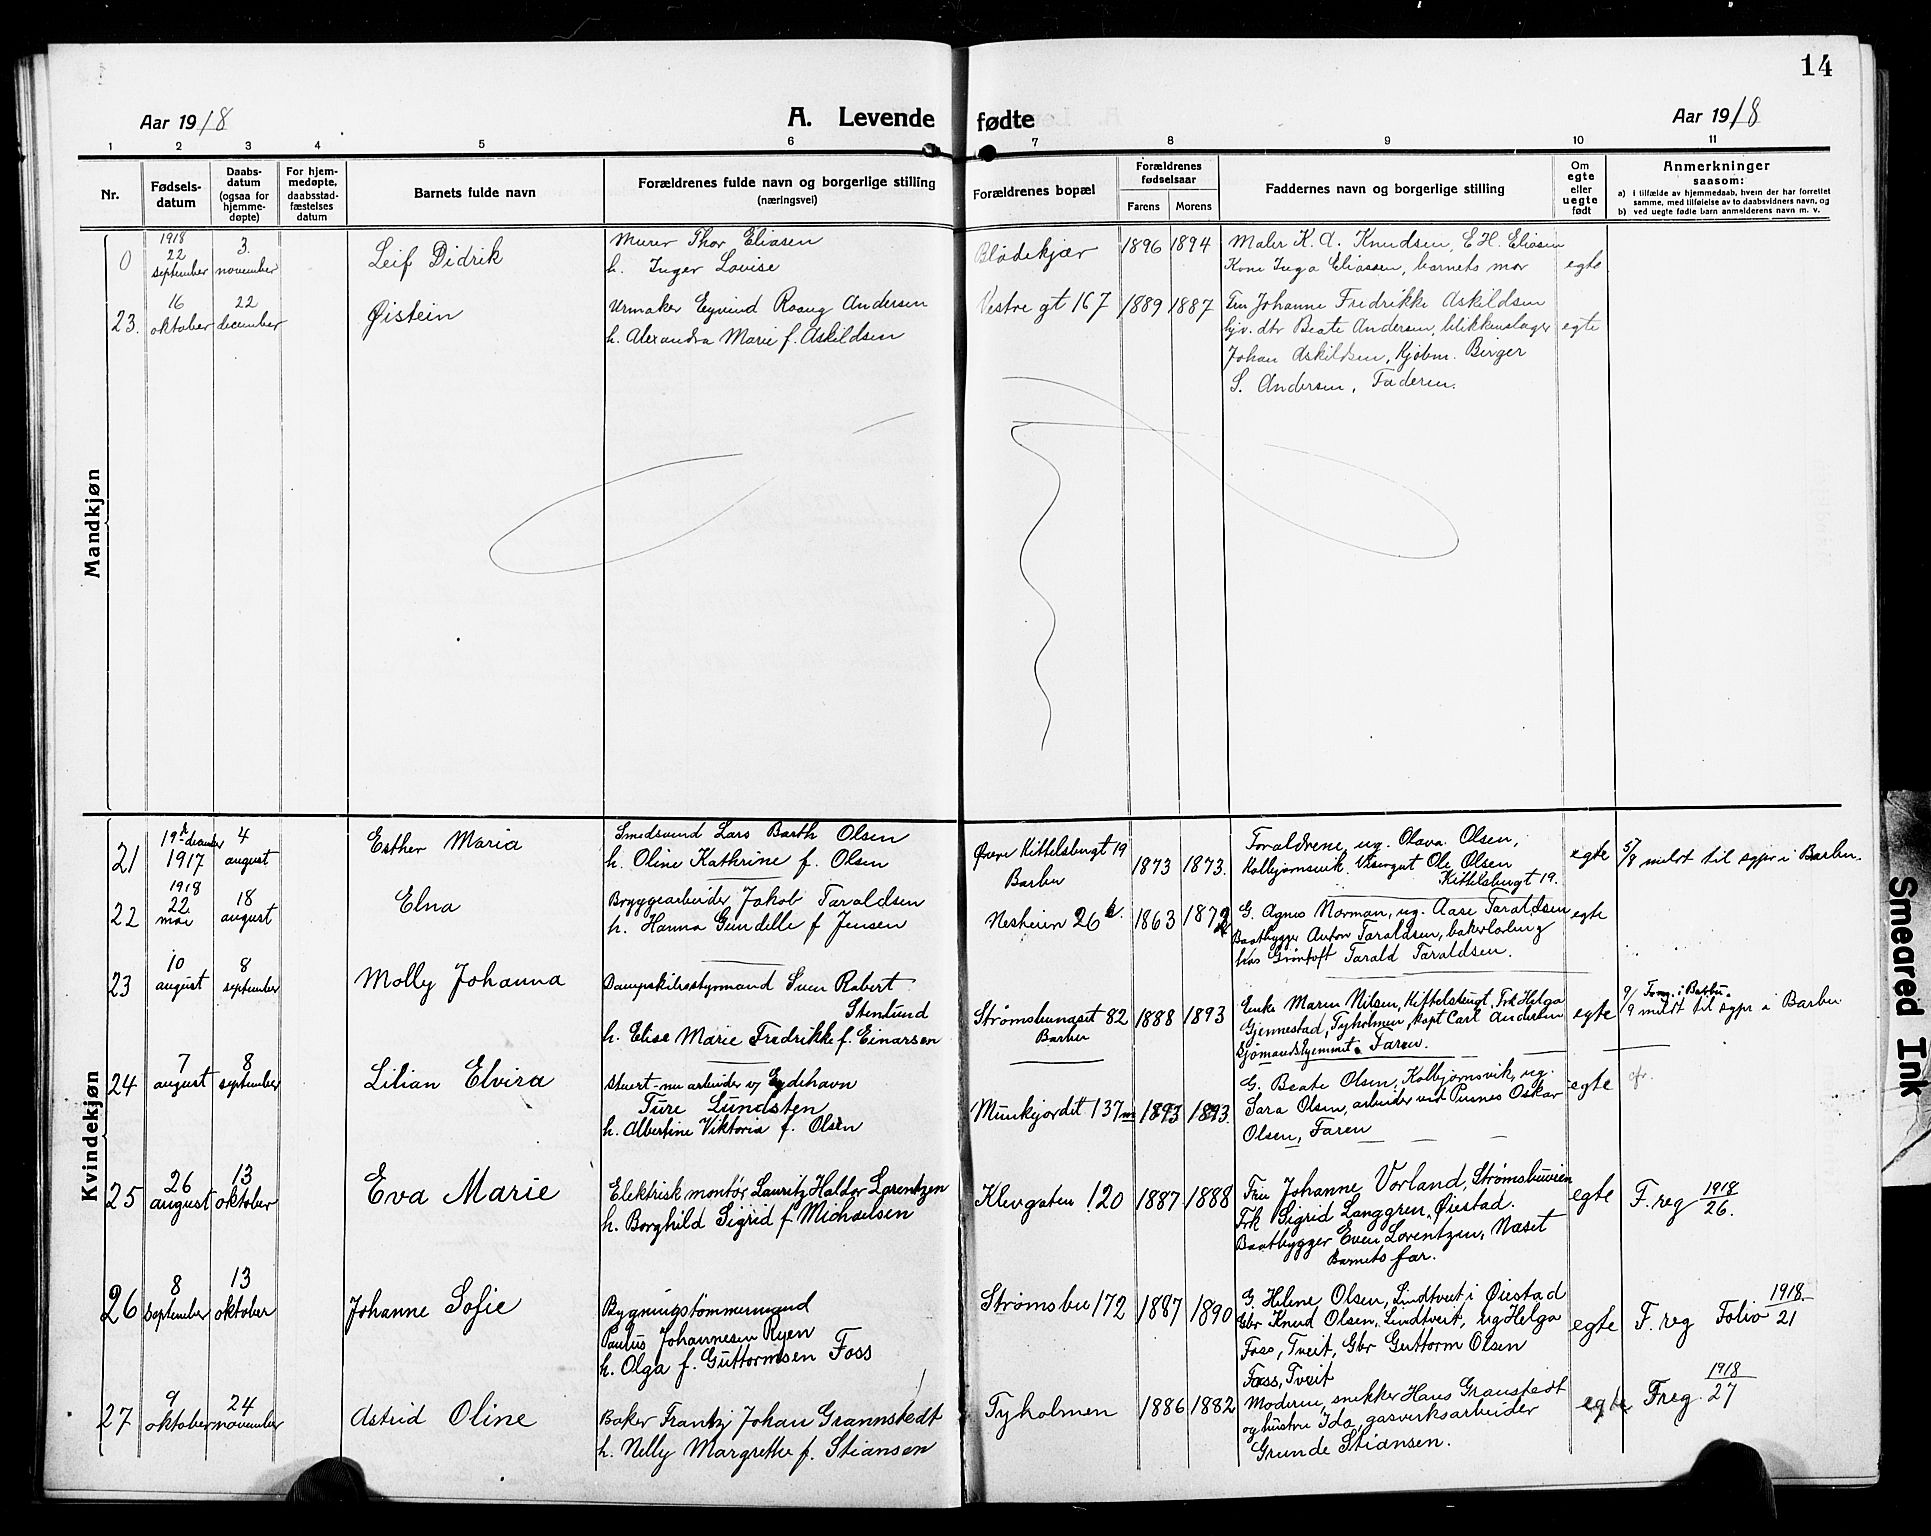 14
Aar 1918
A. Levende fødte
Aar 1918
1 2 3 4 5 6 7 8 9 10 11
Nr.
Fødsels-
datum
Daabs-
datum
(ogsaa for
hjemme-
døpte)
For hjem-
medøpte,
daabsstad-
fæstelses
datum
Barnets fulde navn
Forældrenes fulde navn og borgerlige stilling
(næringsvei)
Forældrenes bopæl
Forældrenes
fødselsaar
Farens Morens
Faddernes navn og borgerlige stilling
Om
egte
eller
uegte
født
Anmerkninger
saasom:
a) i tilfælde av hjemmedaab, hvem der har forrettet
samme, med tilføielse av to daabsvidners navn, og
b) ved uegte fødte barn anmelderens navn m. v.
Mandkjøn
0
1918
22
september
3.
november
Leif Didrik
Murer Thor Eliasen
h. Inger Lovise
Blødekjær
1896 1894
Maler K. A. Knudsen, E. H. Eliasen
Kone Inga Eliassen, barnets mor
egte
23.
16
oktober
22
december
Øistein
Urmaker Eyvind Roang Andersen
h. Alexandra Marie f. Askildsen
Vestre gt 167
1889 1887
Fru Johanne Fredrikke Askildsen
hjv. dtr Beate Andersen, blikkenslager
Johan Askildsen, Kjøbm. Birger
S. Andersen, Faderen.
egte
Kvindekjøn
21
19de december
1917
4
august
Esther Maria
Smedsvend Lars Barth Olsen
h. Oline Kathrine f. Olsen
Øvre Kittelsbugt 19
Barbu
1873 1873.
Forældrene, ug. Olava Olsen,
Kolbjørnsvik. Visergut Ole Olsen
Kittelsbugt 19.
egte
5/8 meldt til sgpr i Barbu.
22
1918
22
mai
18
august
Elna
Bryggearbeider Jakob Taraldsen
h. Hanna Gundelle f Jensen
Nesheim 26 b.
1863 1872
G. Agnes Norman, ug. Aase Taraldsen
Baatbygger Anton Taraldsen, bakerlærling
hos Grøntoft Tarald Taraldsen.
egte
23
10
august
8
september
Molly Johanna
Dampskibsstyrmand Sven Robert
Stenlund
h. Elise Marie Fredrikke f. Einarsen
Strømsbunæset 82
Barbu
1888 1893
Enke Maren Nilsen, Kittelsbugt, Frk Helga
Gjennestad, Tyholmen, kapt Carl Andersen
Sjømandshjemmet. Faren.
egte
9/9 meldt til sgpr i Barbu
24
7
august
8
september
Lilian Elvira
Stuert - nu arbeider v/ Eydehavn
Ture Lundsten
h. Albertine Viktoria f. Olsen
Munkjordet 137
1893 1893.
G. Beate Olsen, Kolbjørnsvik, ug.
Sara Olsen, arbeider ved Pusnes Oskar
Olsen, Faren
egte
25
26
august
13
oktober
Eva Marie
Elektrisk montør Lauritz Haldor Lorentzen
h. Borghild Sigrid f Michaelsen
Klevgaten 120
1887 1888
Fru Johanne Vorland, Strømsbuveien
Frk Sigrid Langgren, Øiestad.
Baatbygger Even Lorentzen, Næset
Barnets far.
egte
F. reg 1918/26.
26
8
september
13
oktober
Johanne Sofie
Bygningstømmermand
Paulus Johannesen Ryen
h. Olga f. Guttormsen Foss
Strømsbu 172
1887 1890
G. Helene Olsen, Lindtveit i Øiestad
Gbr Knud Olsen, Lindtveit, ug Helga
Foss, Tveit, Gbr Guttorm Olsen
Foss, Tveit
egte
F. reg Folio 1918/21
27
9
oktober
24
november
Astrid Oline
Baker Frantz Johan Grannstedt
h. Nelly Margrethe f. Stiansen
Tyholmen
1886 1882
Moderen, snekker Hans Granstedt
og hustru Ida, gasverksarbeider
Grunde Stiansen.
egte
F reg. 1918/27
Smeared Ink